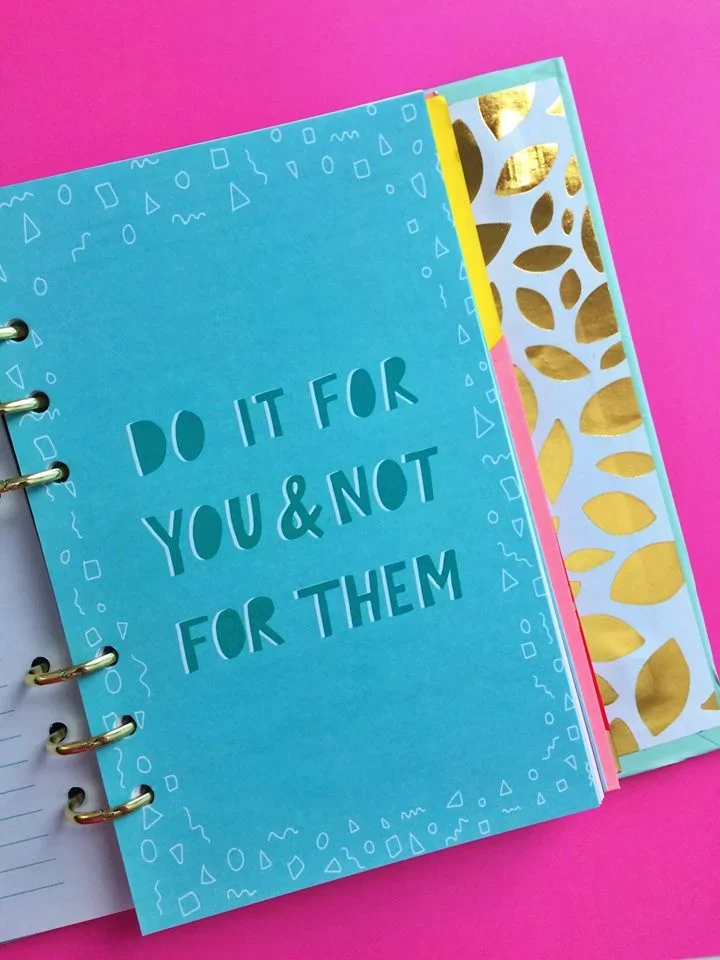 DO IT FOR
YOU & NOT
FOR THEM